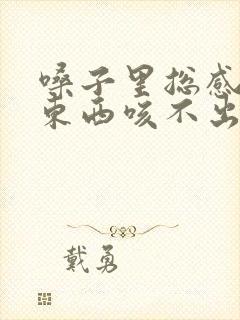 嗓子里总感
东西咳不出
戴勇